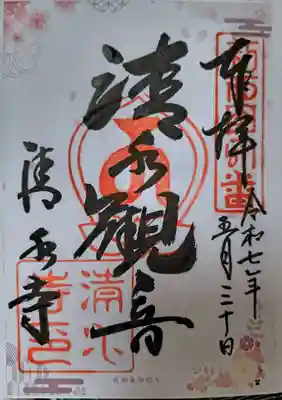 奉拝
令和七年
五月三十日
清水觀音
清水寺
清水
寺印